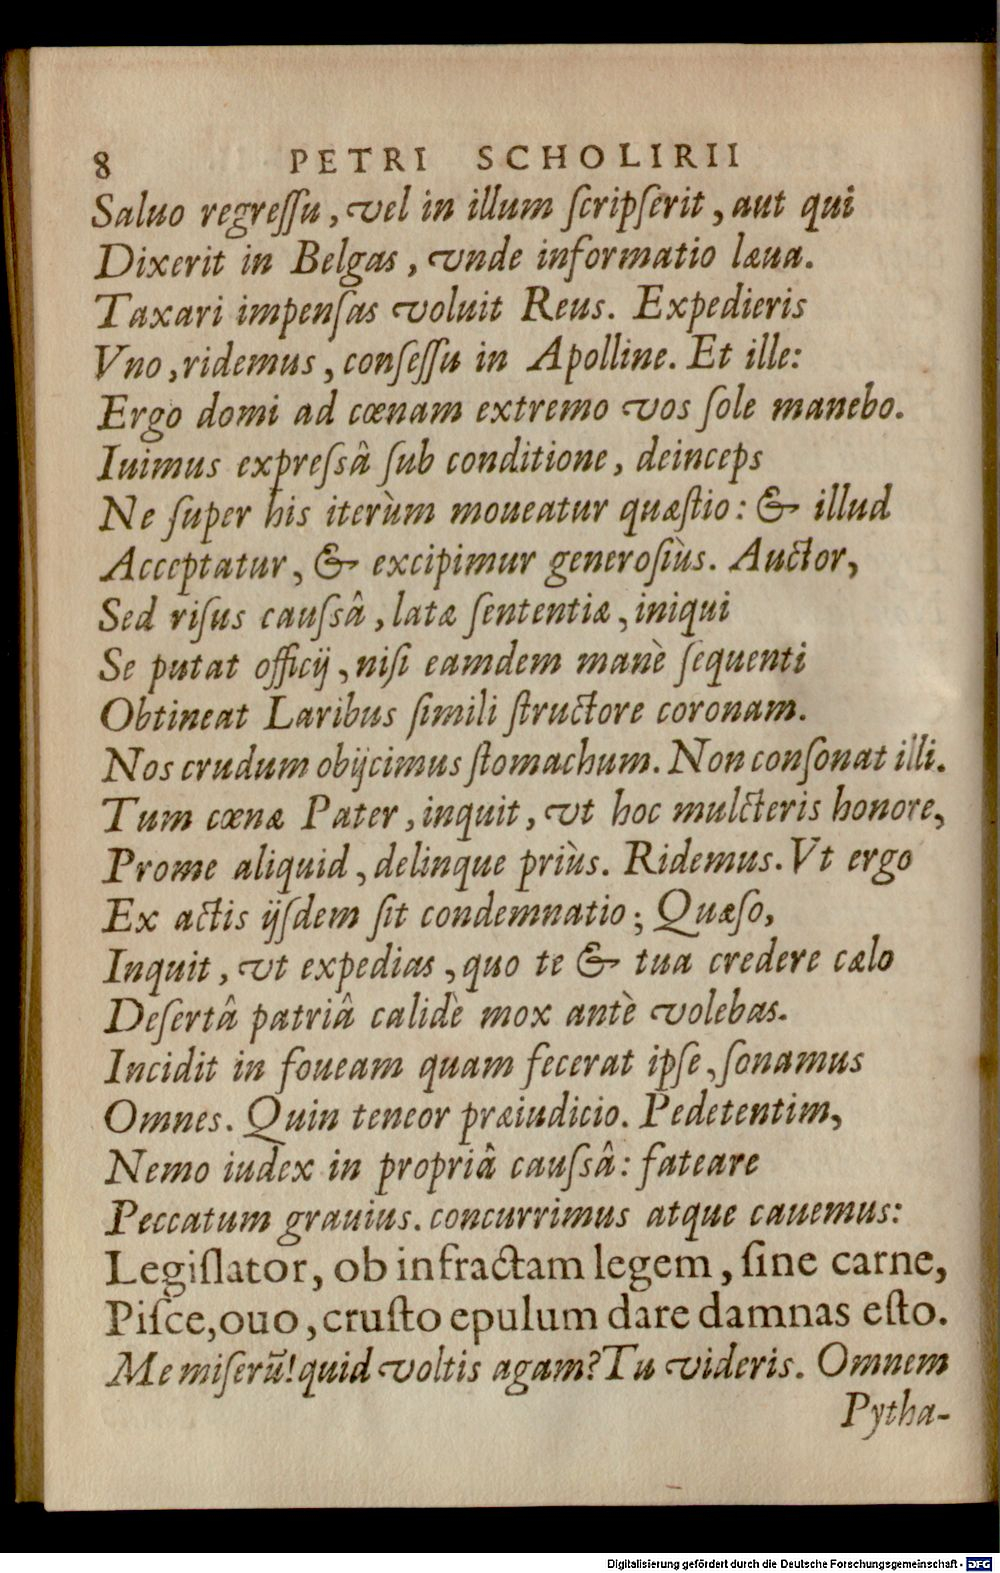 8 PETRI SCHOLIRII
Saluo regreſſu, vel in illum ſcripſerit, aut qui
Dixerit in Belgas, vnde informatio læua.
Taxari impenſas voluit Reus. Expedieris
Vno, ridemus, conſeſſu in Apolline. Et ille:
Ergo domi ad cœnam extremo vos ſole manebo.
Iuimus expreſsâ ſub conditione, deinceps
Ne ſuper his iterùm moueatur quæſtio: & illud
Acceptatur, & excipimur generoſiùs. Auctor,
Sed riſus cauſsâ, latæ ſententiæ, iniqui
Se putat officij, niſi eamdem manè ſequenti
Obtineat Laribus ſimili ſtructore coronam.
Nos crudum obijcimus ſtomachum. Non conſonat illi.
Tum cœnæ Pater, inquit, vt hoc mulcteris honore,
Prome aliquid, delinque priùs. Ridemus. Vt ergo
Ex actis ijſdem ſit condemnatio; Quæſo,
Inquit, vt expedias, quo te & tua credere cælo
Deſertâ patriâ calidè mox antè volebas.
Incidit in foueam quam fecerat ipſe, ſonamus
Omnes. Quin teneor præiudicio. Pedetentim,
Nemo iudex in propriâ cauſsâ: fateare
Peccatum grauius. concurrimus atque cauemus:
Legiſlator, ob infractam legem, ſine carne,
Piſce, ouo, cruſto epulum dare damnas eſto.
Me miſerū! quid voltis agam? Tu videris. Omnem
Pytha-
Digitalisierung gefördert durch die Deutsche Forschungsgemeinschaft - DFG